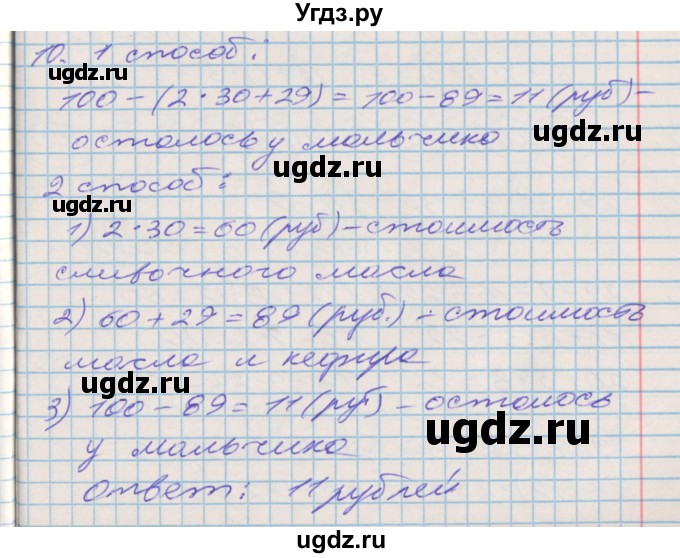 Угдз.ру
10. 1 способ:
ugdz.ru ugdz.ru
100 - (2 · 30 + 29) = 100 - 89 = 11 (руб) -
ugdz.ru
осталось у мальчика
ugdz.ru
2 способ:
ugdz.ru
1) 2 · 30 = 60 (руб) - стоимость
сливочного масла
2) 60 + 29 = 89 (руб.) - стоимость
масла и кефира
ugdz.ru
3) 100 - 89 = 11 (руб) - осталось
ugdz.ru
у мальчика
ugdz.ru
Ответ: 11 рублей
ugdz.ru
ugdz.ru